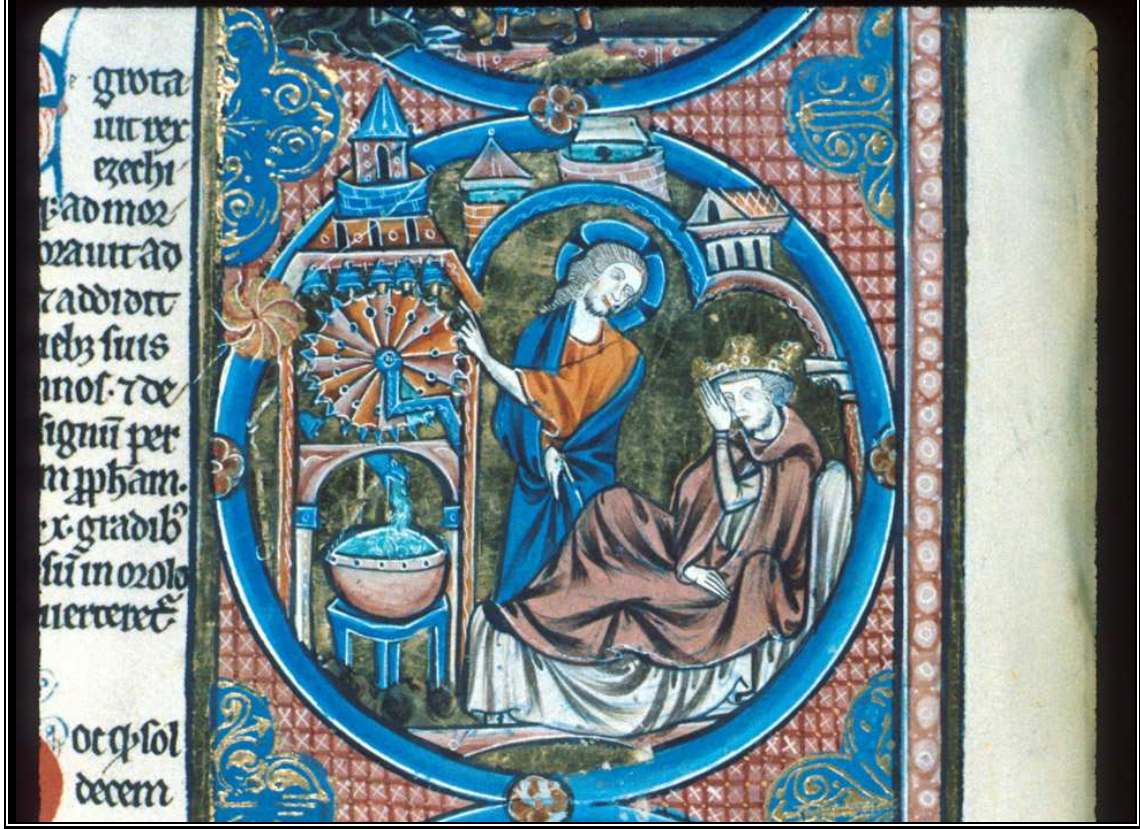 grota
uit rex
ezechi
ad mor
orauit ad
⁊ addidit
iebꝫ suis
nnos. ⁊ de
signū per
m ꝓpham.
x. gradibꝰ
sū in orolo
uerteret᷑
oc ꝙ sol
decem